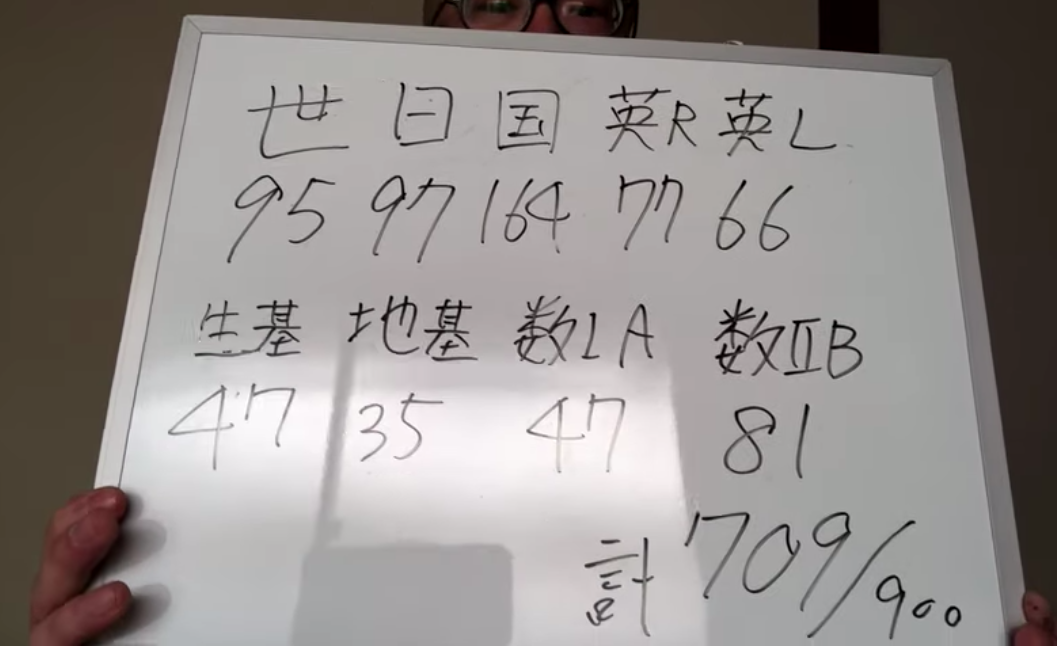 世 日 国 英R 英L
95 97 164 77 66
生基 地基 数IA 数IIB
47 35 47 81
計 709/900